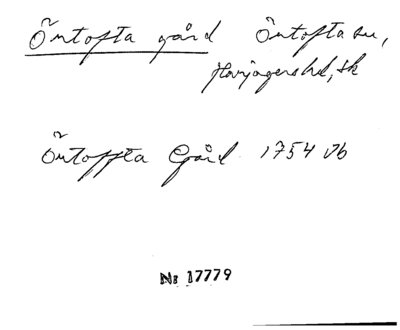 Öntofta gård Öntofta sn,
Harjagers hd, Sk
Öntoffta Gård 1754 Vb
No 17779